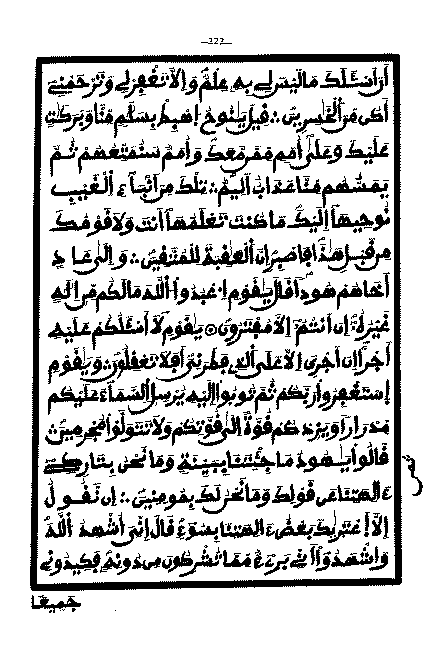 —222—
أن أسئلك ما ليس لي به علم وإلا تغفر لي وترحمني
أكن من الخسرين ∴ قيل ينوح اهبط بسلم منا وبركت
عليك وعلى أمم ممن معك وأمم سنمتعهم ثم
يمسهم منا عذاب أليم ∴ تلك من أنباء الغيب
نوحيها إليك ما كنت تعلمها أنت ولا قومك
من قبل هذا فاصبر إن العقبة للمتقين ∴ وإلى عاد
أخاهم هودا قال يقوم اعبدوا الله ما لكم من إله
غيره إن أنتم إلا مفترون ∴ يقوم لا أسئلكم عليه
أجرا إن أجري إلا على الذي فطرني أفلا تعقلون ∴ ويقوم
استغفروا ربكم ثم توبوا إليه يرسل السماء عليكم
مدرارا ويزدكم قوة إلى قوتكم ولا تتولوا مجرمين ∴
قالوا يهود ما جئتنا ببينة وما نحن بتاركي
ءالهتنا عن قولك وما نحن لك بمومنين ∴ إن نقول
إلا اعتريك بعض ءالهتنا بسوء قال إني أشهد الله
واشهدوا أني بريء مما تشركون من دونه فكيدوني
جميعا
ثمن